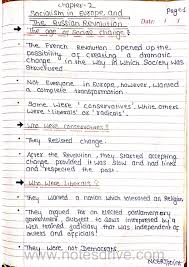 Chapter-2
Page-1
Socialism in Europe and
The Russian Revolution
Date: / /
The age of Social change
The French Revolution Opened up the
possibility of creating a dramatic
change in the way in which Society was
Structured
Not Everyone in Europe, however, wanted
a complete transformation
Some were 'conservatives', while others
were 'liberals' or 'radicals'
Who were conservatives?
They resisted change.
After the Revolution, they Started accepting
change, provided it was Slow and had links
and respected the past.
Who were liberals?
They wanted a nation which tolerated all Religion
They argued for an elected parliamentary
government, subject to laws interpreted by a
well trained judiciary that was independent of
rulers and officials!
They were not Democrats.
https://www.notesdrive.com